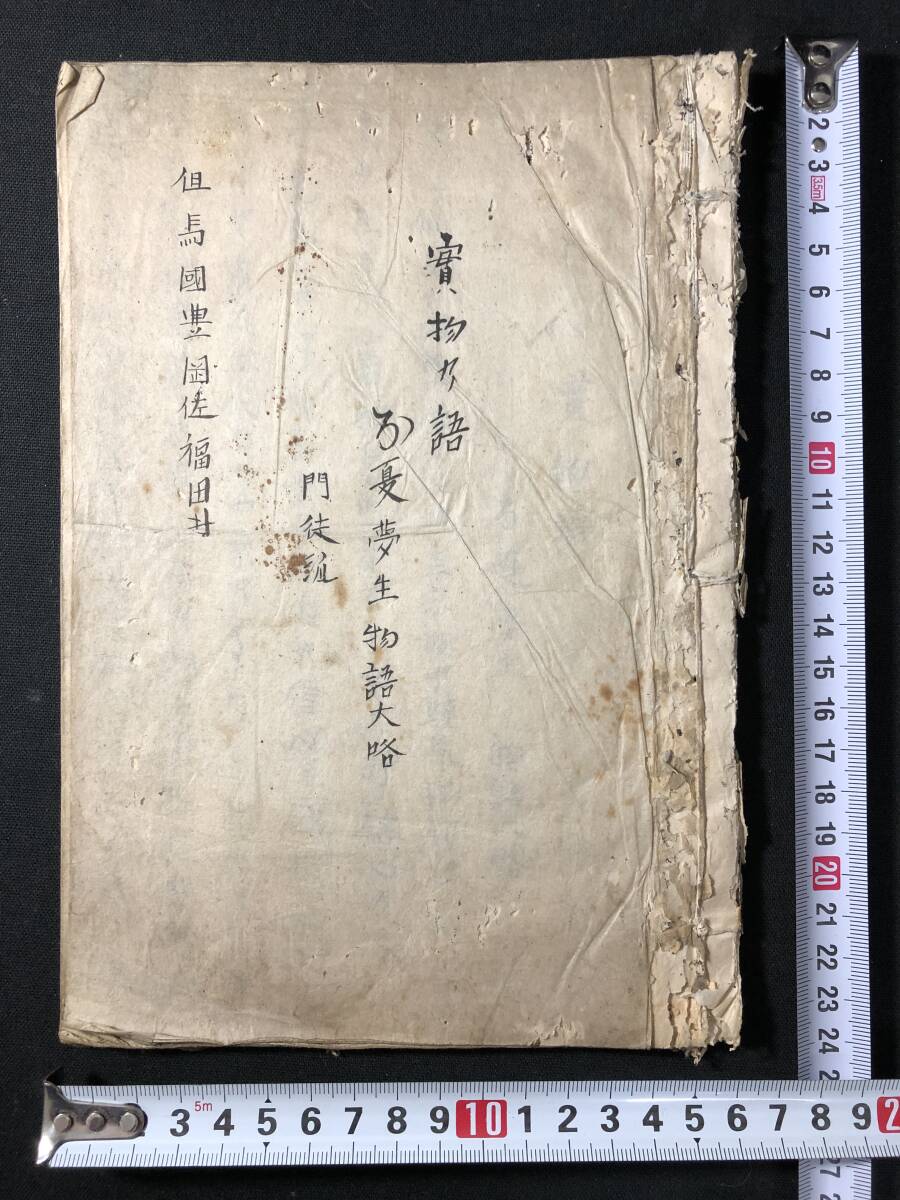 實物カ語
お夏夢生物語大略
門徒
但馬國豊岡佐福田村
2 3 4 5 6 7 8 9 10 11 12 13 14 15 16 17 18 19 20 21 22 23 24 2 27 2
3.5m
3 4 5 6 7 8 9 10 1 2 3 4 5 6 7 8 9 2
5m